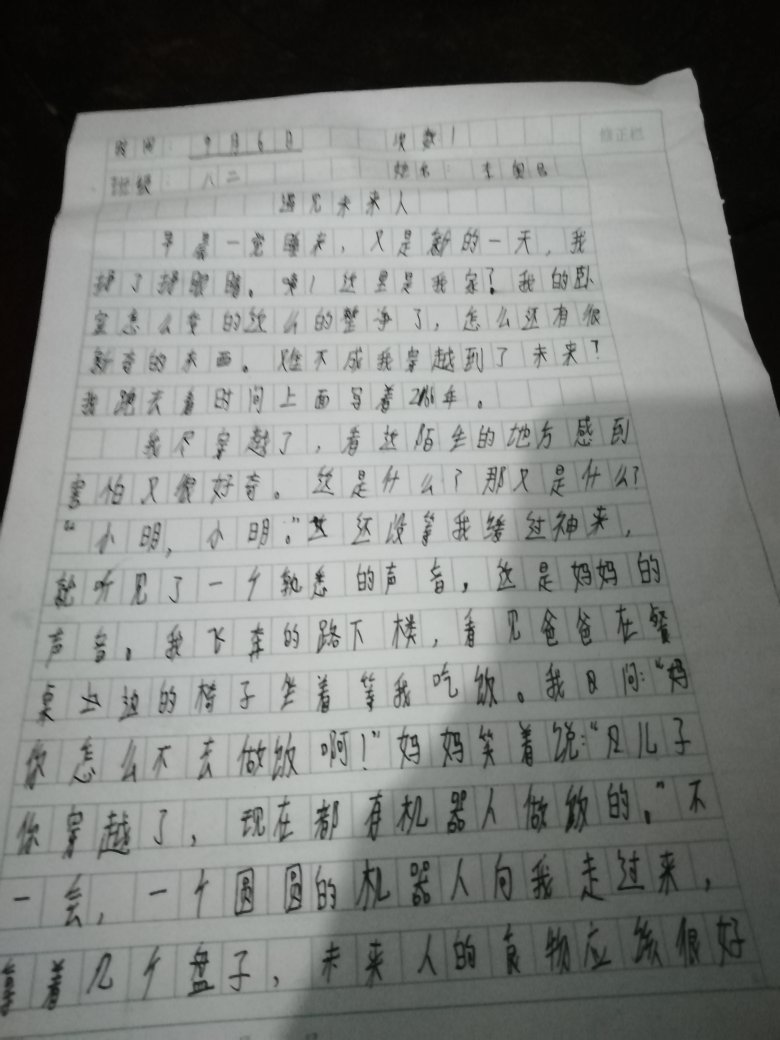 时间：9月6日 次数1 修正栏
班级：八二 姓名：李
遇见未来人
早晨一觉睡来，又是新的一天，我
揉了揉眼睛。噢！这里是我家？我的卧
室怎么变的这么的整净了，怎么还有很
新奇的东西。难不成我穿越到了未来？
我跑去看时间上面写着年。
我穿越了，看这陌生的地方感到
害怕又很好奇。这是什么？那又是什么？
“小明，小明。”还没等我缓过神来，
就听见了一个熟悉的声音，这是妈妈的
声音。我飞奔的路下楼，看见爸爸在餐
桌边的椅子坐着等我吃饭。我问：“妈
你怎么不去做饭啊！”妈妈笑着说：“儿子
你穿越了，现在都有机器人做饭的。”不
一会，一个圆圆的机器人向我走过来，
拿着几个盘子，未来人的食物应该很好